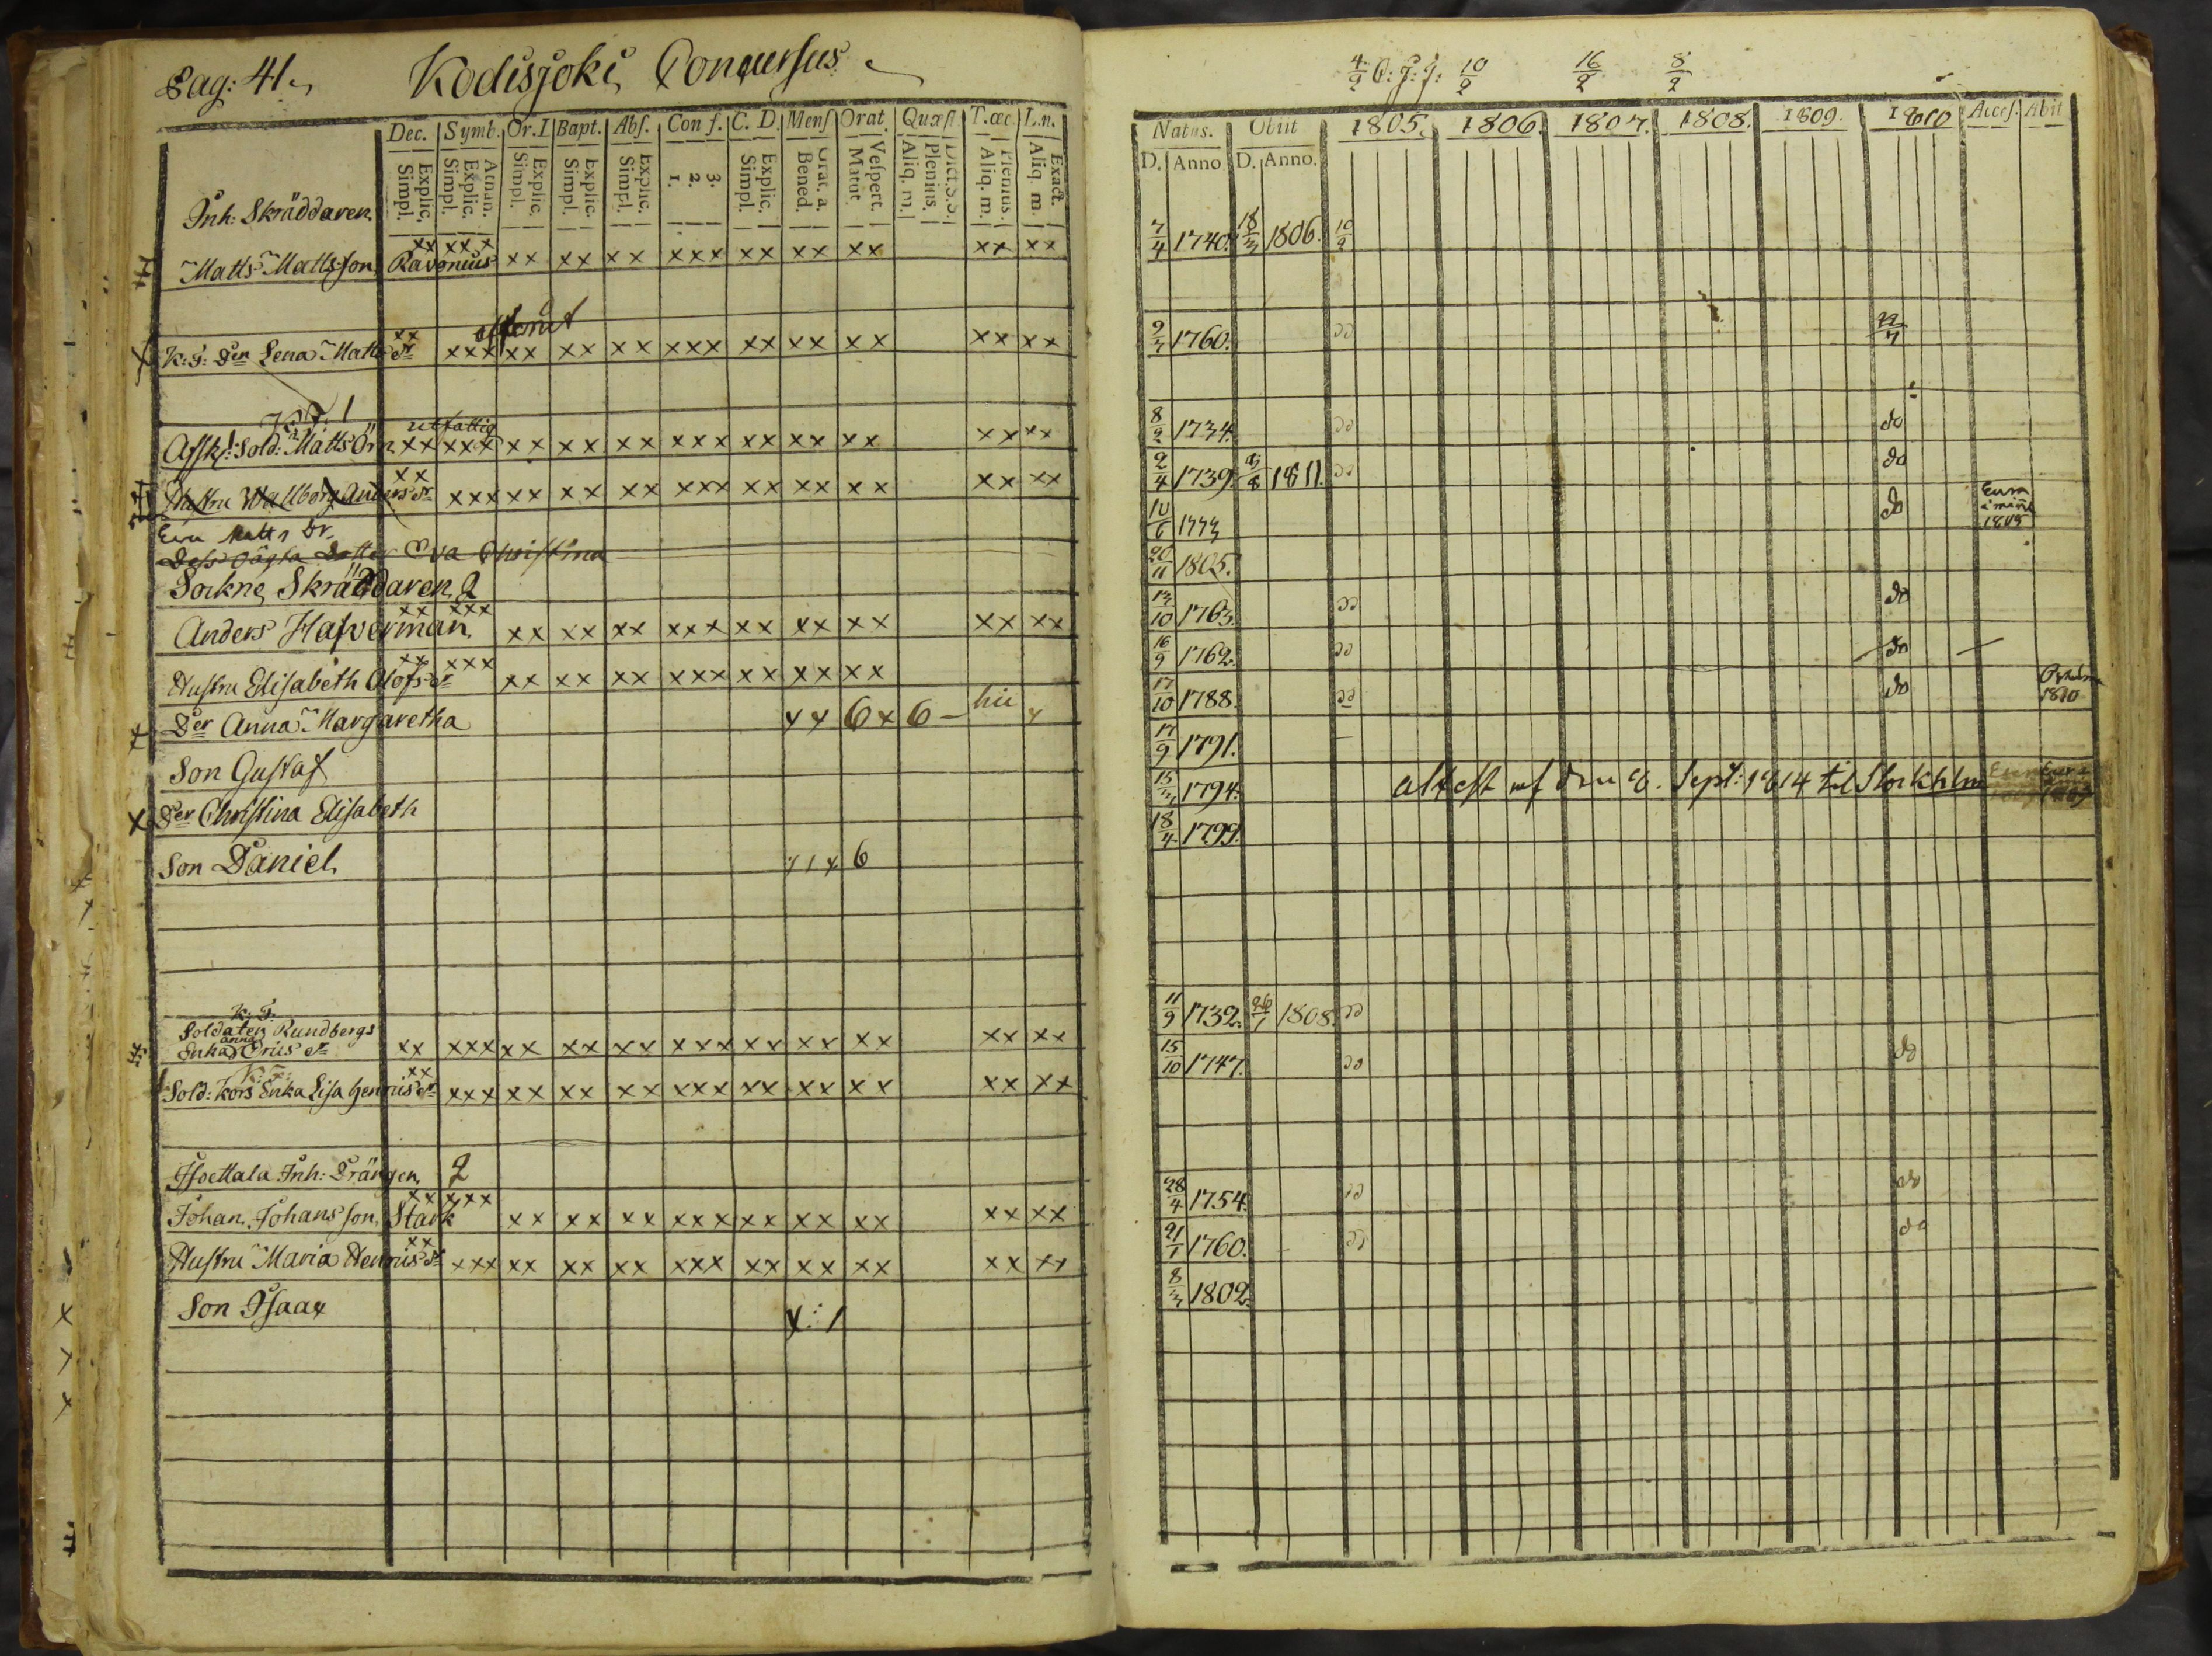 Pag: 41. Kodisjoki Concursus
Dec. Symb. Or. I Bapt. Abs. Conf. C. D. Mens Orat. Quæst T. œc. L. n.
Explic. Simpl. Athan. Explic. Simpl. Explic. Simpl. Explic. Simpl. Explic. Simpl. 3. 2. 1. Explic. Simpl. Grat. a. Bened. Vespert. Matut. Dict. S. S. Plenius. Aliq. m. Plenius. Aliq. m. Exact. Aliq. m.
Inh: Skräddaren
Matts Mattsson Ravonius xx xxx xx xx xx xxx xx xx xx xx xx
K: g: Der Lena Matts dr xx xxx xx xx xx xxx xx xx xx xx xx
utfattig
Afsk: Sold: Matts Örn xx xxx xx xx xx xxx xx xx xx xx xx
Hustru Wallborg Anders dr xx xxx xx xx xx xxx xx xx xx xx xx
Eva Matts Dr.
Dess oägta Dotter Eva Christina
Sockne Skräddaren 2
Anders Hafverman xx xxx xx xx xx xxx xx xx xx xx xx
Hustru Elisabeth Olofs dr xx xxx xx xx xx xxx xx xx xx
Der Anna Margaretha x x 6 x 6 –
Son Gustaf
Der Christina Elisabeth
Son Daniel 6
K: g:
Soldaten Rundbergs
anna
Enka Eriks dr xx xxx xx xx xx xxx xx xx xx xx xx
Sold: Kors Enka Lisa Henriks dr xx xxx xx xx xx xxx xx xx xx xx xx
Isoettala Inh: Drängen 2
Johan Johansson Stark xx xxx xx xx xx xxx xx xx xx xx xx
Hustru Maria Henriks dr xx xxx xx xx xx xxx xx xx xx xx xx
Son Isaac x: 1
4/2 10/2 16/2 8/2
Natus. Obiit 1805. 1806. 1807. 1808. 1809. 1810 Access. Abit
D. Anno D. Anno.
7/4 1740. 18/3 1806. 10/2
9/7 1760. do 22/7
8/2 1734. do do
2/4 1739. 1811. do do
10/6 do Eura
20/11 1805.
13/10 1763. do do
16/9 1762. do do
17/10 1788. do do 1810
17/9 1791.
15/3 1794. attest utf den 8. Sept: 1814 til Stockholm
18/4 1799.
11/9 1732. 26/1 1808. do
15/10 1747. do do
28/4 1754. do do
21/1 1760. do do
8/3 1802.